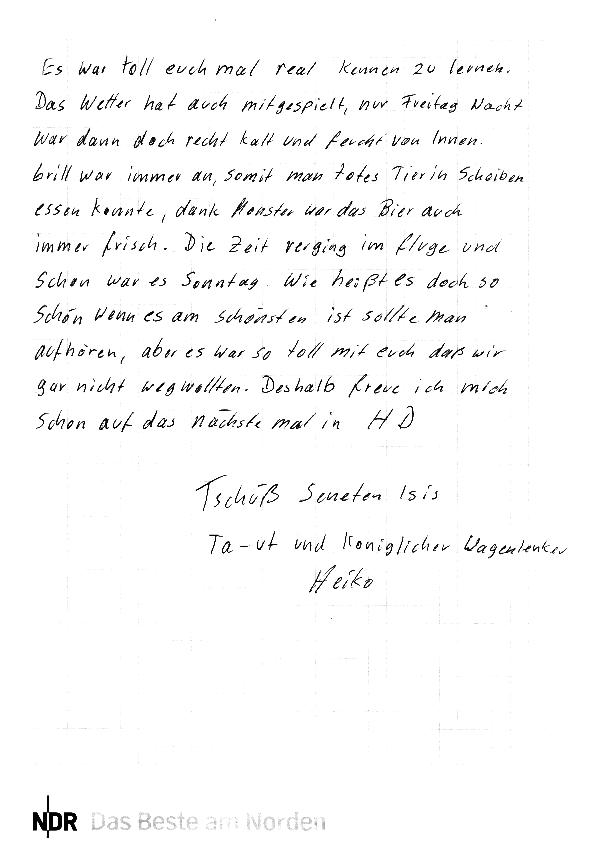 Es war toll euch mal real kennen zu lernen.
Das Wetter hat auch mitgespielt, nur Freitag Nacht
war dann doch recht kalt und feucht von Innen.
brill war immer an, somit man totes Tier in Scheiben
essen konnte, dank Monster war das Bier auch
immer frisch. Die Zeit verging im fluge und
schon war es Sonntag. Wie heißt es doch so
schön wenn es am schönsten ist sollte man
aufhören, aber es war so toll mit euch daß wir
gar nicht weg wollten. Deshalb freue ich mich
schon auf das nächste mal in HD
Tschüß Seneten Isis
Ta-ut und königlicher Wagenlenker
Heiko
NDR Das Beste am Norden